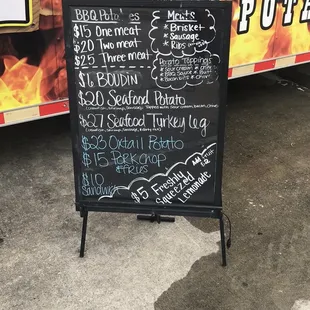 BBQ Potatoes
$15 One meat
$20 Two meat
$25 Three meat
$6 BOUDIN
$20 Seafood Potato
$27 Seafood Turkey leg
$23 Oxtail Potato
$15 Porkchop
& FRIES
$10
Sandwich
Meats
Brisket
Sausage
Ribs
Potato Toppings
Sour cream
BBQ Sauce
Bacon bits
$5 Freshly
Squeezed
Lemonade